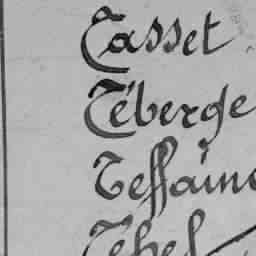 Tasset
Téberge
Teffaine